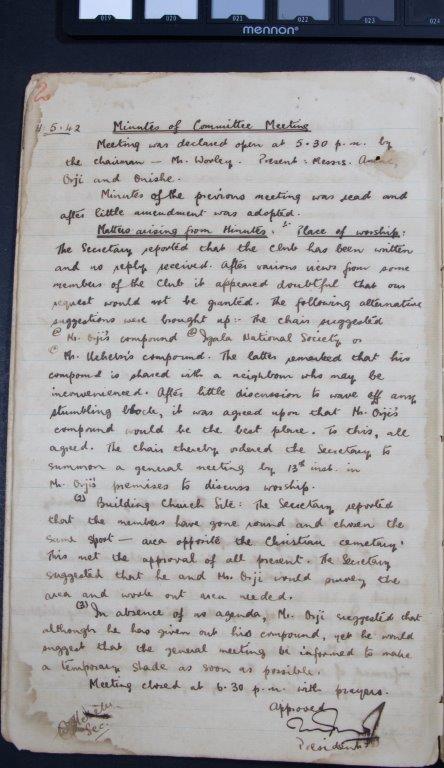 019 020 021 022 023
mennon
2
5.42 Minutes of Committee Meeting
Meeting was declared open at 5.30 p.m. by
the chairman — Mr. Worley. Present: Messrs.
Orji and Onishe.
Minutes of the previous meeting was read and
after little amendment was adopted.
Matters arising from Minutes. 1. Place of worship:
The Secretary reported that the Club has been written
and no reply received. After various views from some
members of the Club it appeared doubtful that our
request would not be granted. The following alternative
suggestions were brought up:- The chair suggested
@ Mr. Orji's compound @ Igala National Society or
@ Mr. compound. The latter remarked that his
compound is shared with a neighbour who may be
inconvenienced. After little discussion to wave off any
stumbling block, it was agreed upon that Mr. Orji's
compound would be the best place. To this, all
agreed. The chair thereby ordered the Secretary to
summon a general meeting by 13th inst. in
Mr. Orji's premises to discuss worship.
(2) Building Church Site: The Secretary reported
that the members have gone round and chosen the
same spot — area opposite the Christian cemetary.
This met the approval of all present. The Secretary
suggested that he and Mr. Orji would survey the
area and work out area needed.
(3) In absence of no agenda, Mr. Orji suggested that
although he has given out his compound, yet he would
suggest that the general meeting be informed to make
a temporary shade as soon as possible.
Meeting closed at 6.30 p.m. with prayers.
Approved
Sec.
President